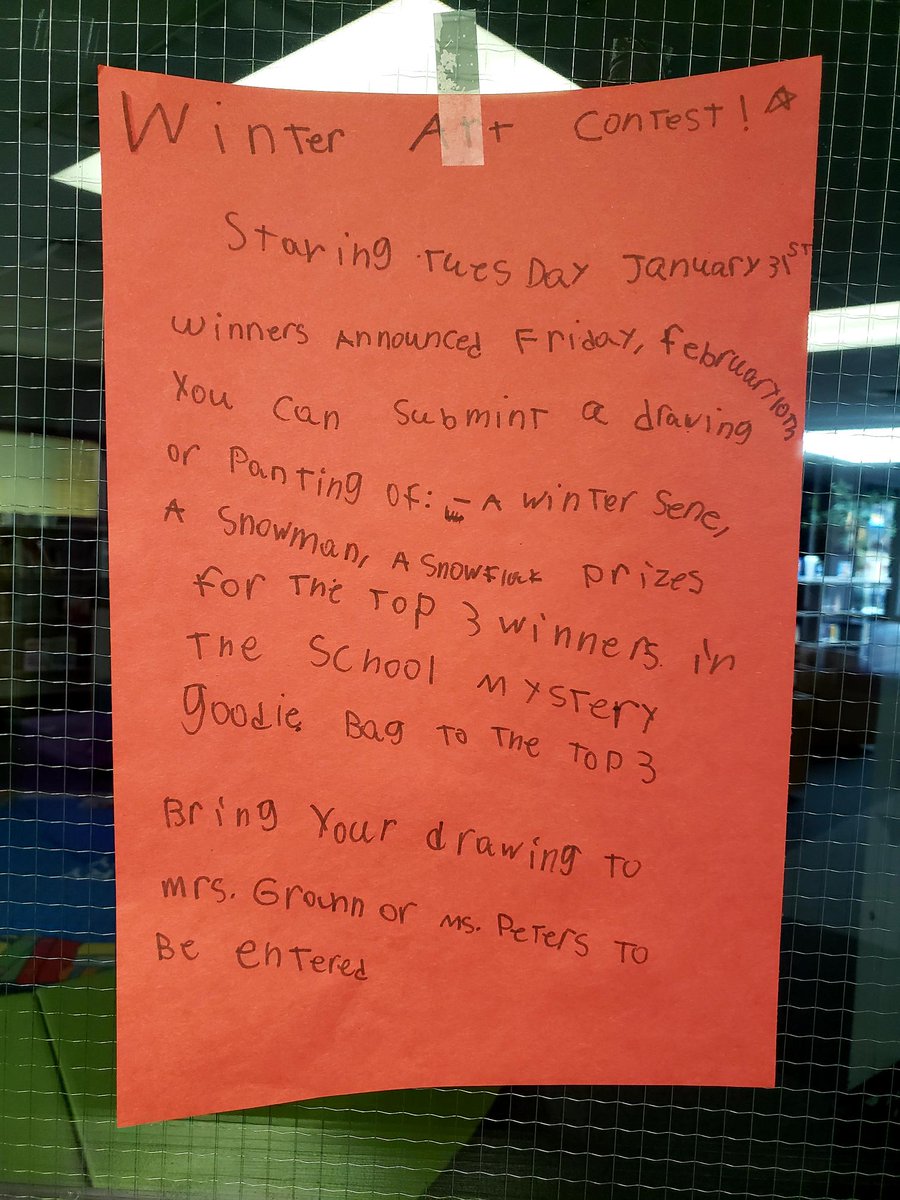 Winter Art Contest!
Staring Tuesday January 31st
Winners Announced Friday, february 10th
You can submint a drawing
or Panting of: - A winter Sene,
A Snowman, A Snowflack prizes
for The Top 3 winners in
The School mystery
goodie Bag to The Top 3
Bring Your drawing to
mrs. Grounn or ms. Peters to
Be entered